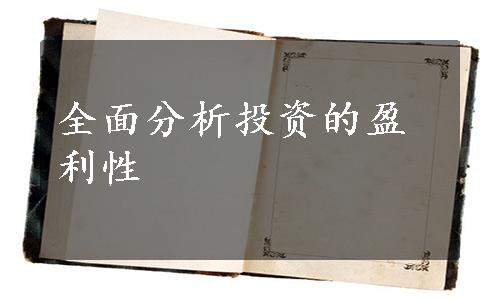 全面分析投资的盈
利性